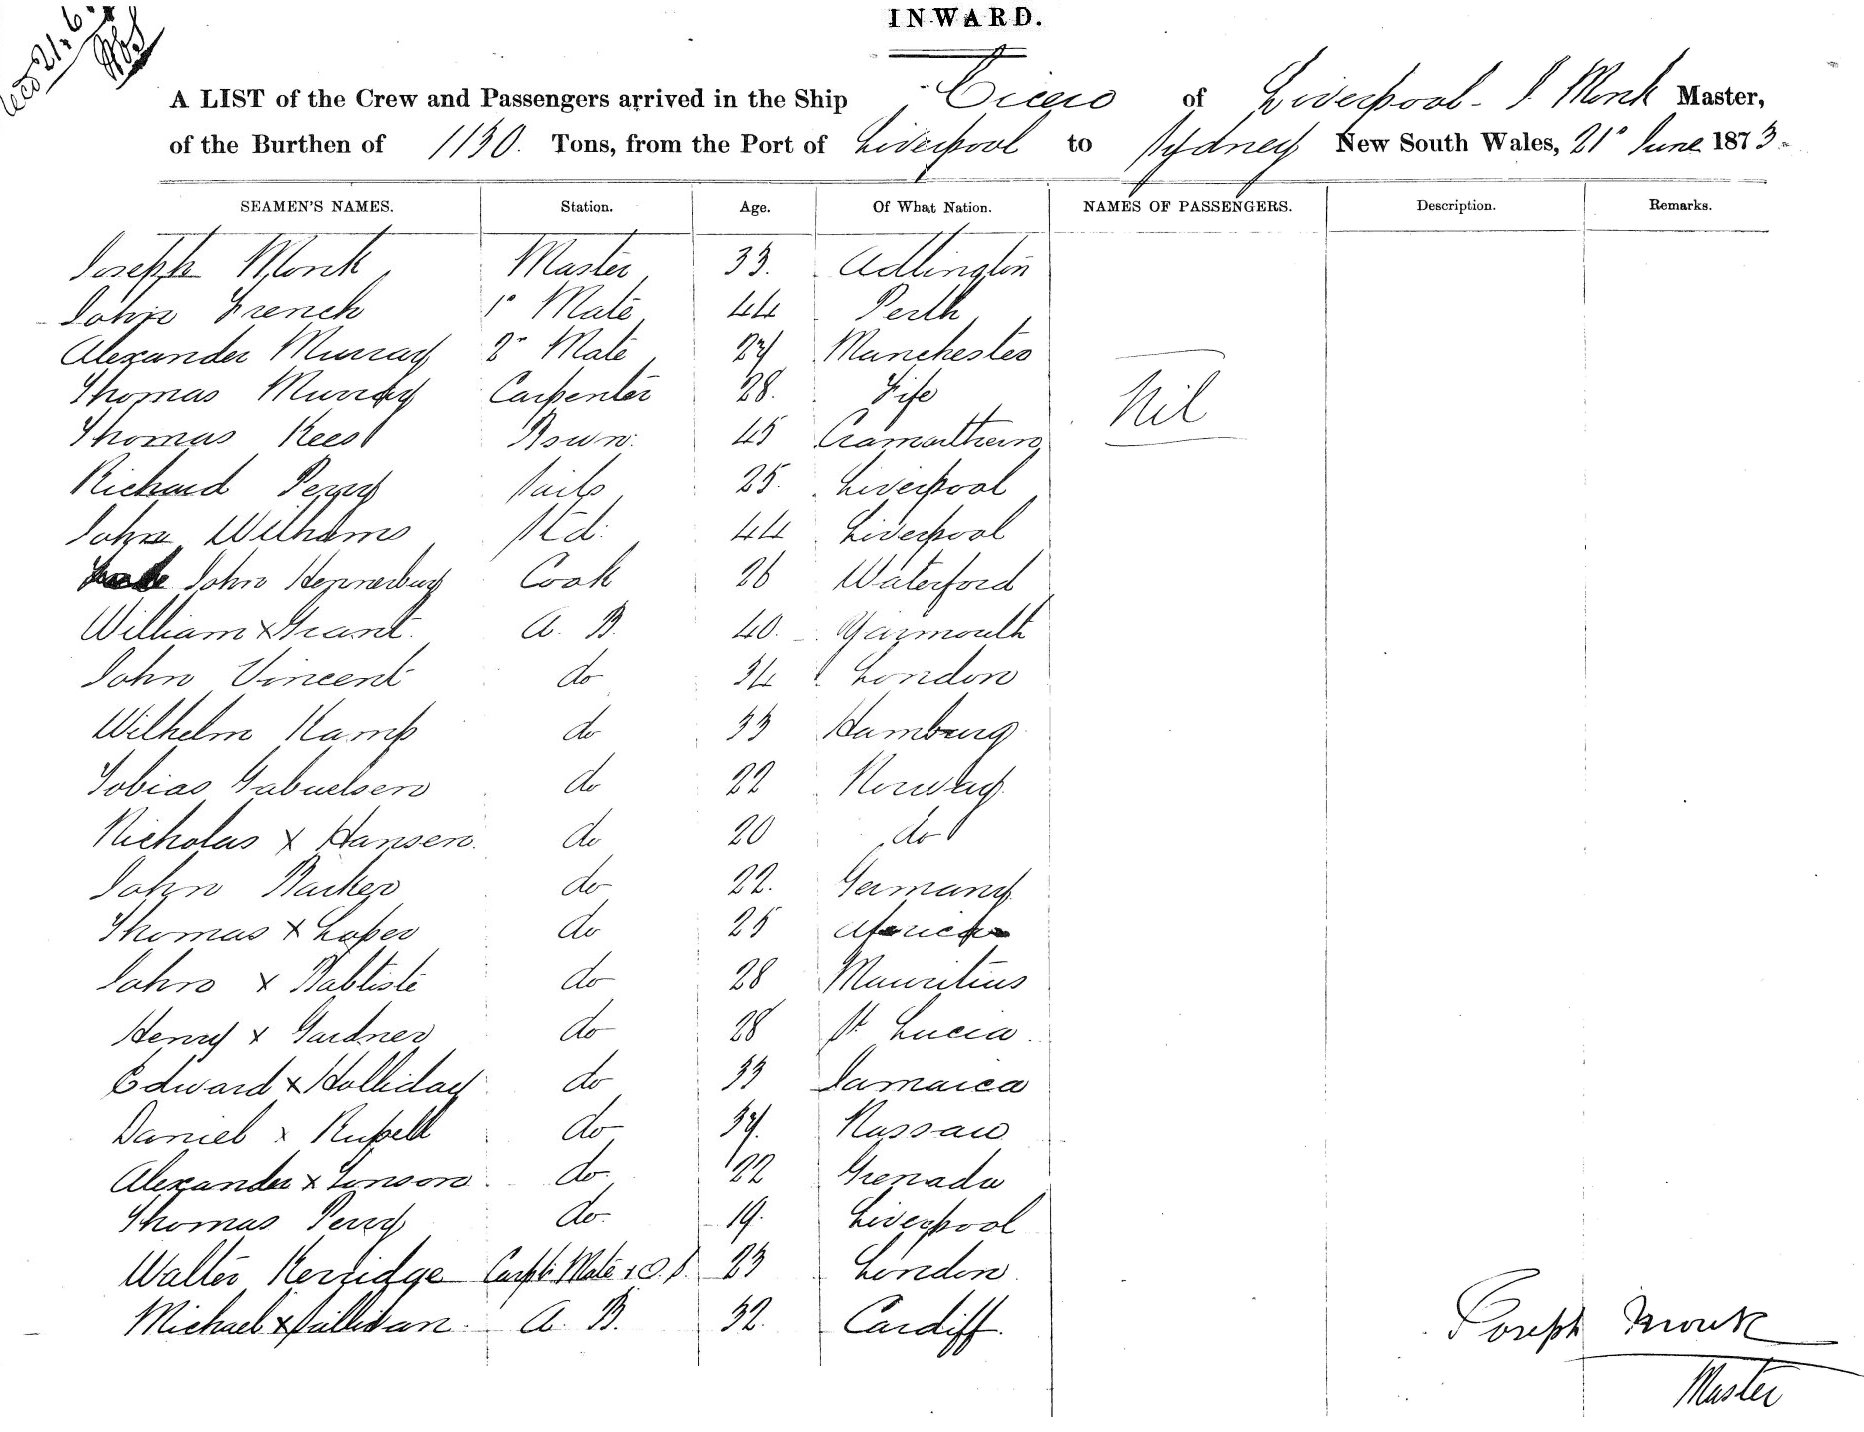 INWARD.
A LIST of the Crew and Passengers arrived in the Ship Cicero of Liverpool - J Monk Master,
of the Burthen of 1130. Tons, from the Port of Liverpool to Sydney New South Wales, 21° June 1873-
SEAMEN'S NAMES. Station. Age. Of What Nation. NAMES OF PASSENGERS. Description. Remarks.
Joseph Monk Master 33. Adlington
John French 1° Mate 44 Perth
Alexander Murray 2° Mate 27 Manchester
Thomas Murray Carpenter 28. Fife
Nil
Thomas Rees Bswn. 45
Richard Perry Sails 25. Liverpool
John Williams Std: 44 Liverpool
John Hennebury Cook 26 Waterford
William x Grant. A. B. 40. Yarmouth
John Vincent do 34 London
Wilhelm Kamp do 33 Hamburg
Tobias Gabrielsen do 22 Norway
Nicholas x Hansen. do 20 do
John Backer do 22. Germany
Thomas x Lopes do 25 Africa
John x Babtiste do 28 Mauritius
Henry x Gardner do 28 St Lucia
Edward x Holliday do 33 Jamaica
Daniel x Russell do 37. Nassau
Alexander x Jonson do 22 Grenada
Thomas Perry do 19. Liverpool
Walter Kerridge Carptr Mate & O.S. 23 London
Michael x Sullivan. A. B. 32. Cardiff.
Joseph Monk
Master